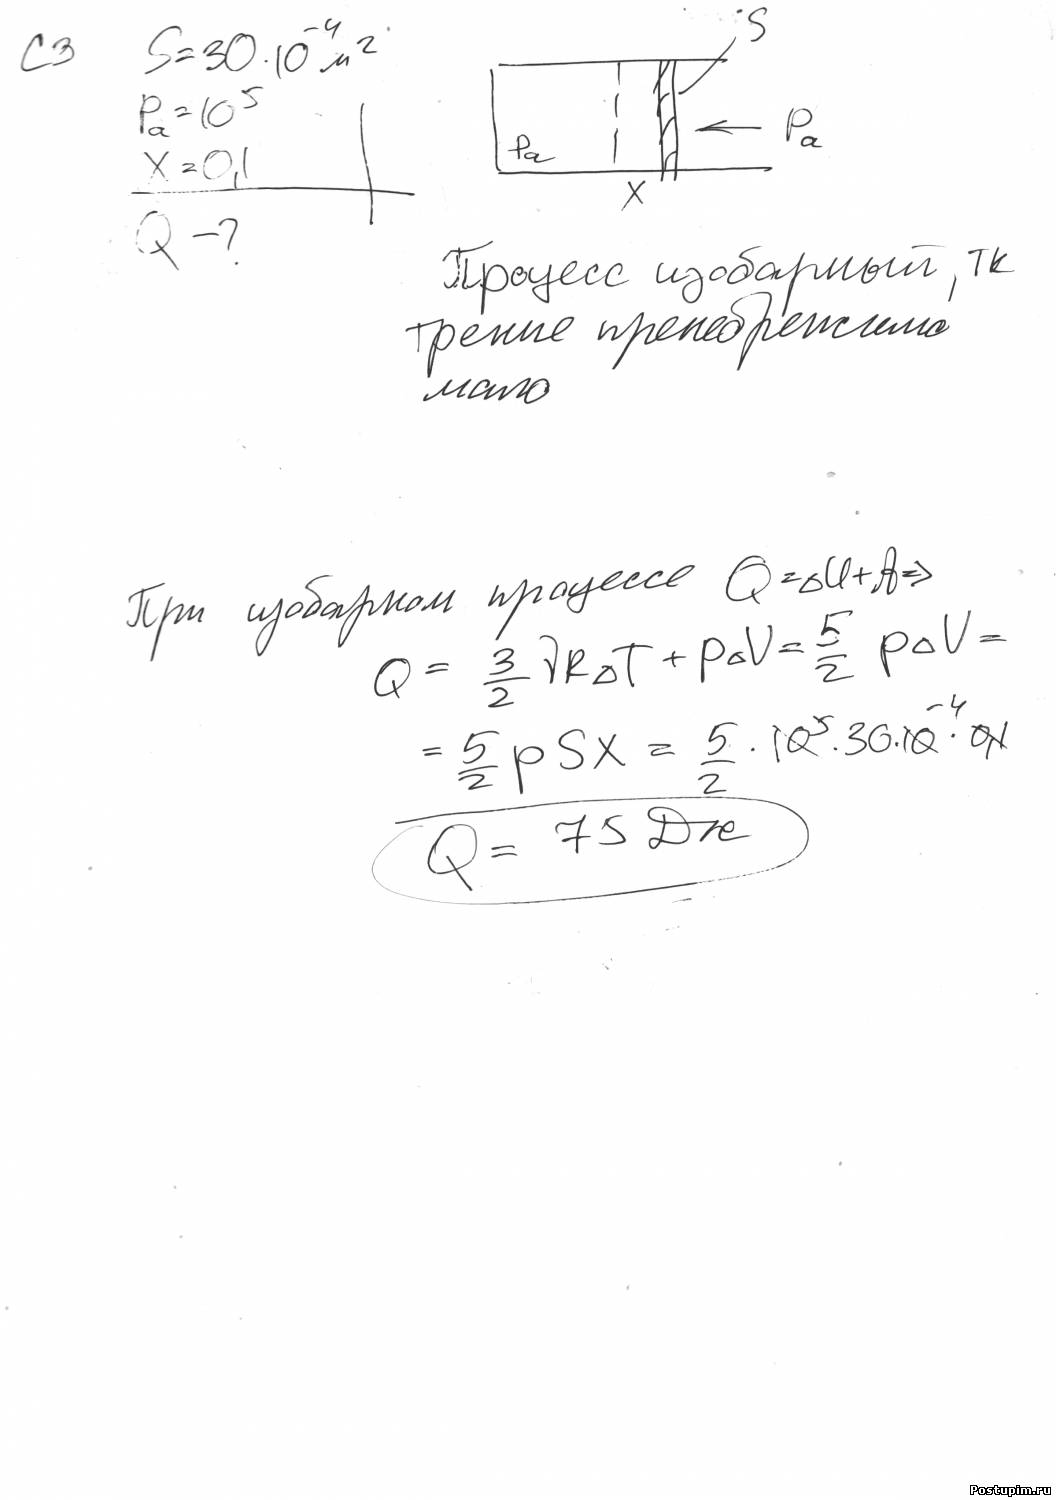 С3 S=30·10⁻⁴ м²
Pₐ=10⁵
X=0,1
Q -?
S
Pₐ
Pₐ
X
Процесс изобарный, тк
трение пренебрежимо
мало
При изобарном процессе Q=ΔU+A⇒
Q = 3/2 νRΔT + pΔV = 5/2 pΔV =
= 5/2 pSX = 5/2 · 10⁵·30·10⁻⁴·0,1
Q = 75 Дж
Postupim.ru